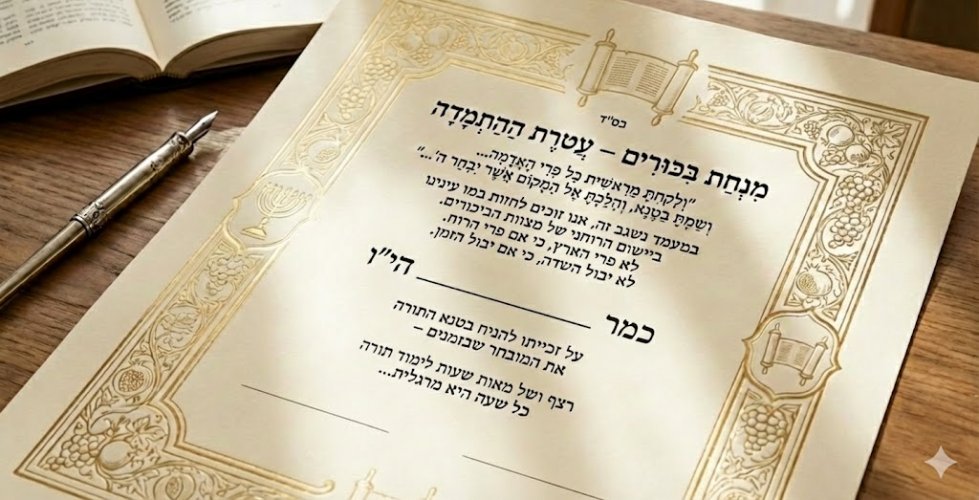 בס"ד
מִנְחַת בִּכּוּרִים – עֲטֶרֶת הַהַתְמָדָה
"וְלָקַחְתָּ מֵרֵאשִׁית כָּל פְּרִי הָאֲדָמָה...
וְשַׂמְתָּ בַטֶּנֶא, וְהָלַכְתָּ אֶל הַמָּקוֹם אֲשֶׁר יִבְחַר ה'..."
במעמד נשגב זה, אנו זוכים לחזות במו עינינו
ביישום הרוחני של מצוות הביכורים.
לא פרי הארץ, כי אם פרי הרוח.
לא יבול השדה, כי אם יבול הזמן.
כמר ____________ הי"ן
על זכייתו להניח בטנא התורה
את המובחר שבזמנים –
רצף ושל מאות שעות לימוד תורה
כל שעה היא מרגלית...